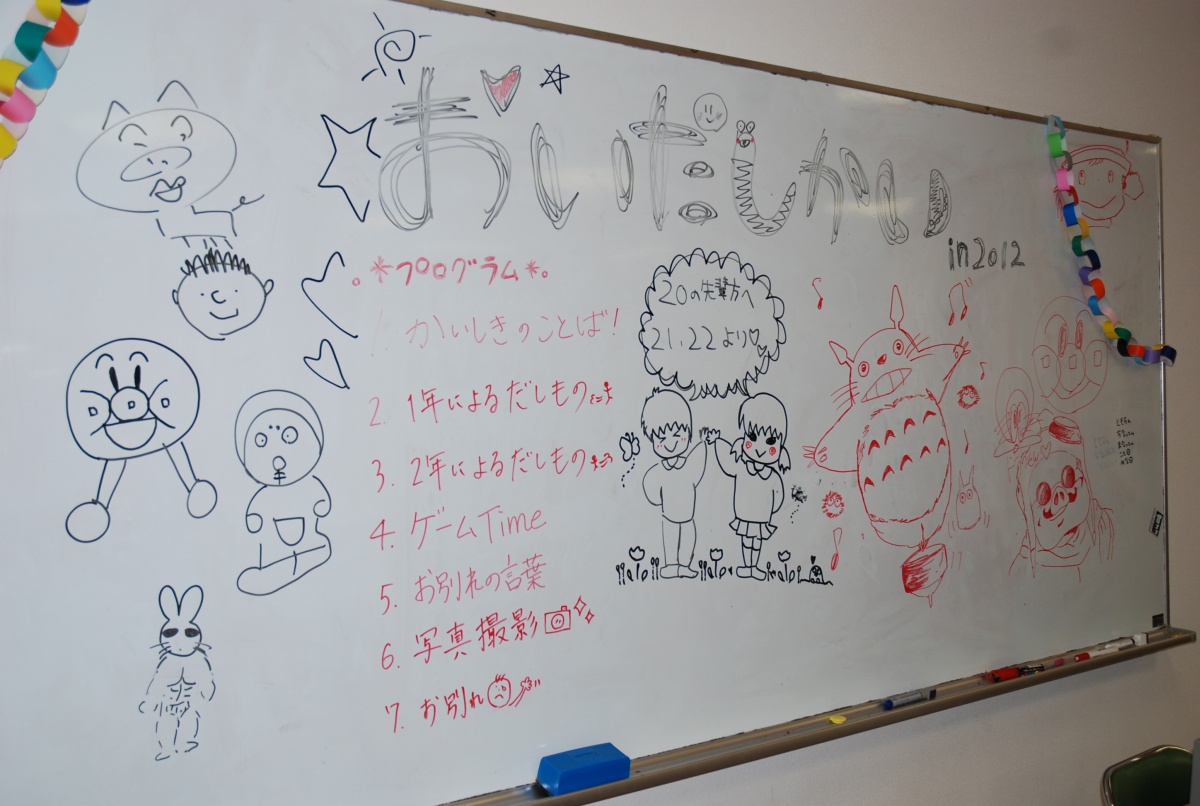 おいだしかい
in 2012
*プログラム*
1 かいしきのことば!
2. 1年によるだしもの
3. 2年によるだしもの
4. ゲームTime
5. お別れの言葉
6. 写真撮影
7. お別れ
20の先輩方へ
21、22より♡